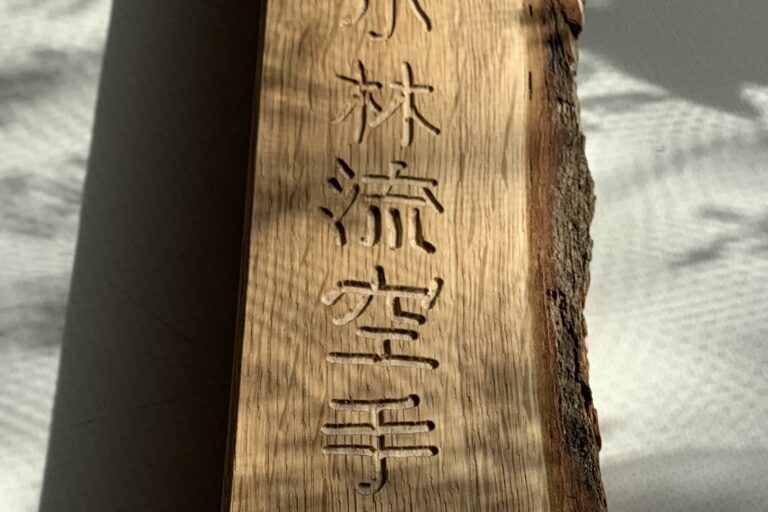 小林流空手